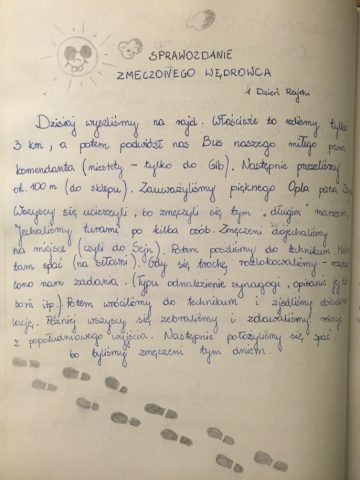 SPRAWOZDANIE
ZMĘCZONEGO WĘDROWCA
1 Dzień Rajdu
Dzisiaj wyszliśmy na rajd. Właściwie to szliśmy tylko
3 km, a potem podwiózł nas Bus naszego miłego pana
komendanta (niestety - tylko do Gib). Następnie przeszliśmy
ok. 400 m (do sklepu). Zauważyliśmy pięknego Opla pana
Wszyscy się ucieszyli, bo zmęczyli się tym "długim" marszem
Jechaliśmy turami po kilka osób. Zmęczeni dojechaliśmy
na miejsce (czyli do Sejn). Potem poszliśmy do technikum
tam spać (na siłowni). Gdy się trochę rozlokowaliśmy -
lono nam zadania. (Typu odnalezienie synagogi, opisanie jej
torii itp.) Potem wróciliśmy do technikum i zjedliśmy
lację. Później wszyscy się zebraliśmy i zdawaliśmy relację
z popołudniowego wyjścia. Następnie położyliśmy się spać,
bo byliśmy zmęczeni tym dniem.